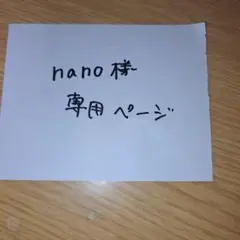 nano様
専用ページ